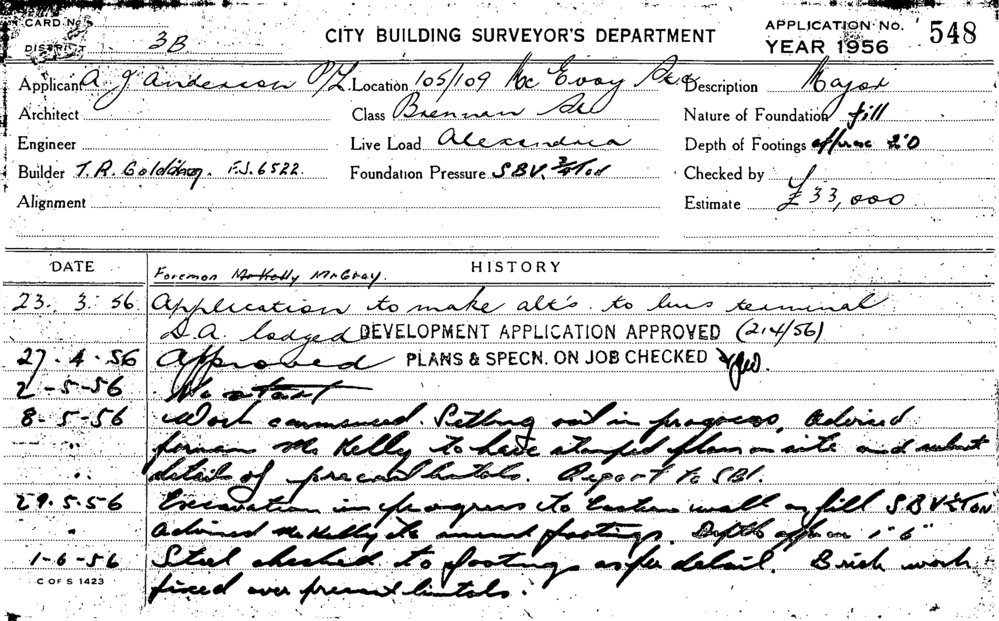 CARD No.
CITY BUILDING SURVEYOR'S DEPARTMENT
APPLICATION No. 548
DISTRICT 3B
YEAR 1956
Applicant A J Anderson P/L Location 105/109 Mc Evoy St & Description Major
Architect Class Brennan St Nature of Foundation fill
Engineer Live Load Alexandria Depth of Footings approx 2'0
Builder T. R. F.J. 6522. Foundation Pressure S.B.V. 3/4 Ton Checked by
Alignment Estimate £33,000
DATE HISTORY
Foreman McKelly McGray.
23. 3. 56 Application to make alt's to bus terminal
D.A. lodged DEVELOPMENT APPLICATION APPROVED (21/4/56)
27. 4. 56 Approved PLANS & SPECN. ON JOB CHECKED
2-5-56 No start
8-5-56 Work commenced. Setting out in progress. Advised
" forman Mc Kelly to have stamped plan on site and submit
" details of precast lintols. Report to SBI.
29.5.56 Excavation in progress to Eastern wall on fill S B V Ton
" Advised McKelly to footings. Depth approx 1' 6"
1-6-56 Steel checked to footings as per detail. Brick work
C OF S 1423
fixed over precast lintols.